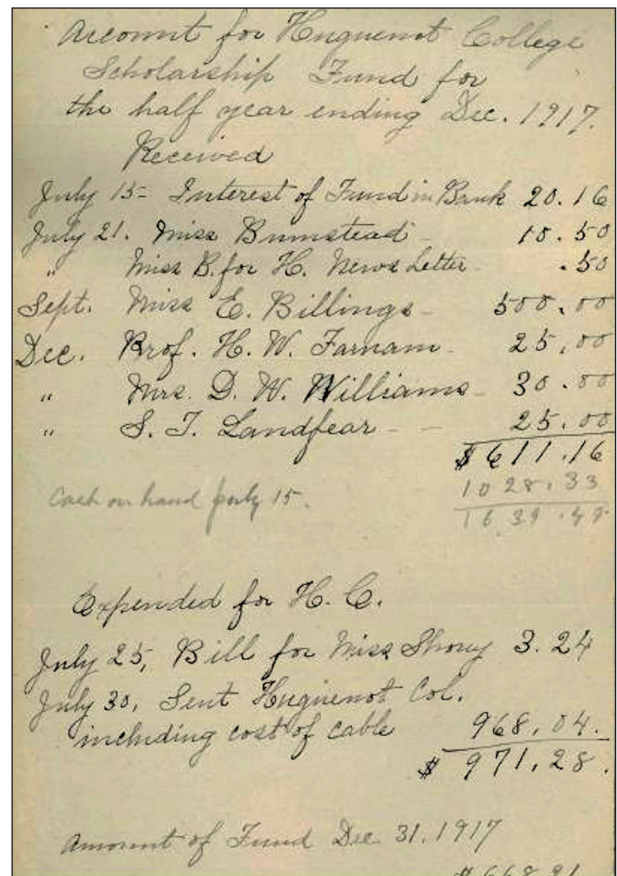 Account for Huguenot College
Scholarship Fund for
the half year ending Dec. 1917.
Received
July 15 - Interest of Fund in Bank 20.16
July 21. Miss Bumstead - 10.50
" Miss B. for H. News Letter - .50
Sept. Miss E. Billings - 500.00
Dec. Prof. H. W. Farnam - 25.00
" Mrs. D. W. Williams - 30.00
" S. T. Landfear - - 25.00
$611.16
Cash on hand July 15. 1028.33
1639.49
Expended for H. C.
July 25, Bill for Miss 3.24
July 30, Sent Huguenot Col.
including cost of cable 968.04.
$ 971.28.
Amount of Fund Dec. 31. 1917
$668.21